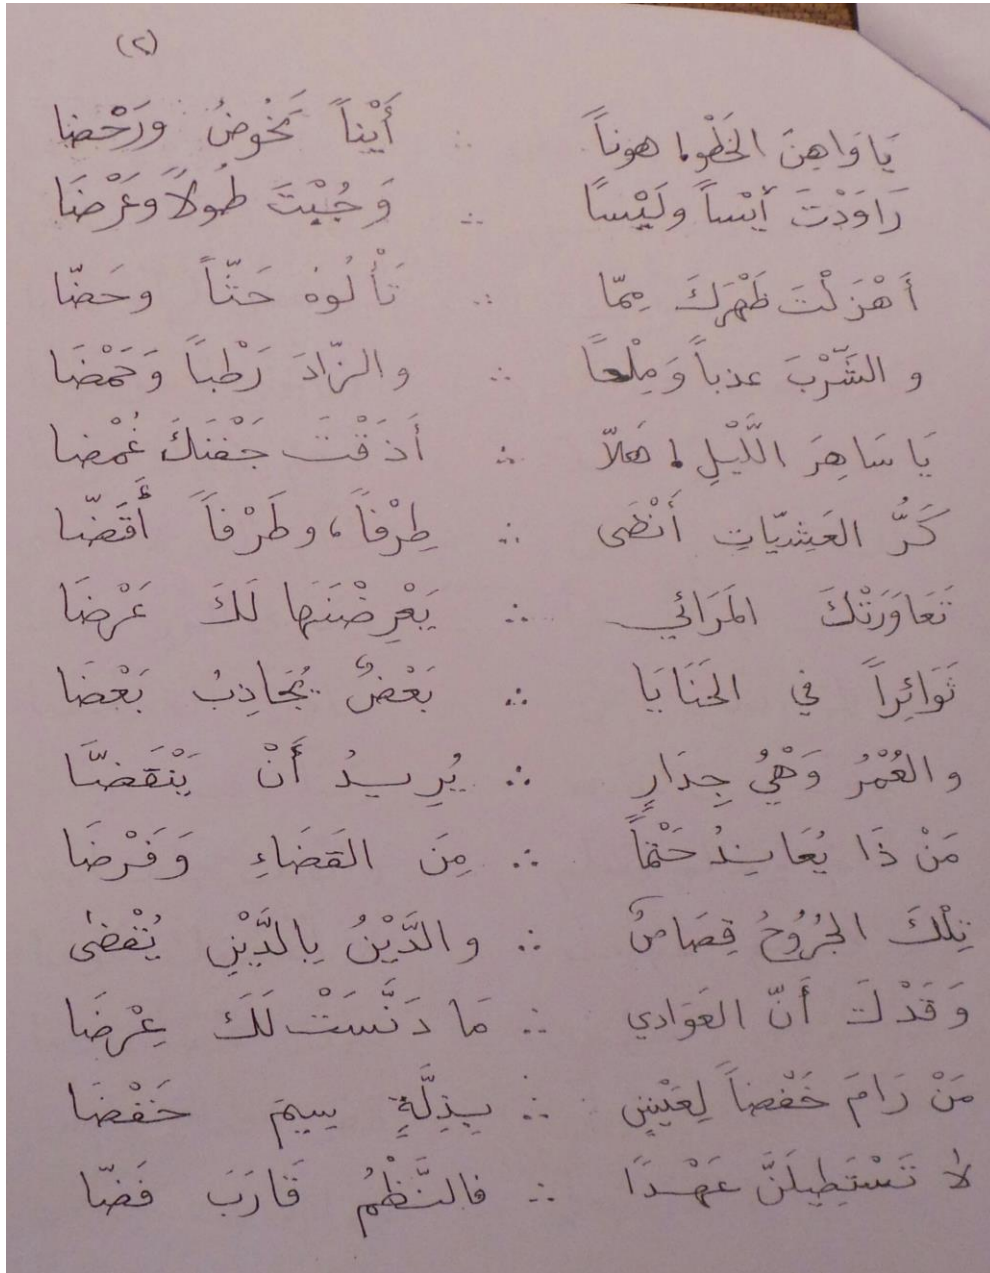 (٢)
يَا وَاهِنَ الخَطْوِ! هوناً ∴ أَيْناً تَخُوضُ وَرَحْضا
رَاوَدْتَ أَيْساً ولَيْسًا ∴ وَجُبْتَ طُولاً وَعَرْضَا
أَهْزَلْتَ ظَهْرَكَ مِمّا ∴ تَأْلُوهُ حَثّاً وحَضّا
و الشَّرْبَ عذباً وَمِلْحاً ∴ والزّادَ رَطْباً وَحَمْضَا
يَا سَاهِرَ اللَّيْلِ! هَلاّ ∴ أَذَقْتَ جَفْنَكَ غُمْضا
كَرُّ العَشِيّاتِ أَنْضَى ∴ طِرْفاً، وطَرْفاً أَقَضّا
تَعَاوَرَتْكَ المَرَائي ∴ يَعْرِضْنَها لَكَ عَرْضَا
ثَوَائِراً في الحَنَايَا ∴ بَعْضٌ يُجَاذِبُ بَعْضا
والعُمْرُ وَهْيُ جِدَارٍ ∴ يُرِيدُ أَنْ يَنْقَضَّا
مَنْ ذَا يُعَانِدُ حَتْماً ∴ مِنَ القَضَاءِ وَفَرْضَا
تِلْكَ الجُرُوحُ قِصَاصٌ ∴ والدَّيْنُ بِالدَّيْنِ يُقْضى
وَقَدْكَ أَنّ العَوَادي ∴ مَا دَنَّسَتْ لَكَ عِرْضَا
مَنْ رَامَ خَفْضاً لِعَيْشٍ ∴ بِذِلَّةٍ سِيمَ خَفْضَا
لا تَسْتَطِيلَنَّ عَهْدًا ∴ فالنَّظْمُ قَارَبَ فَضّا